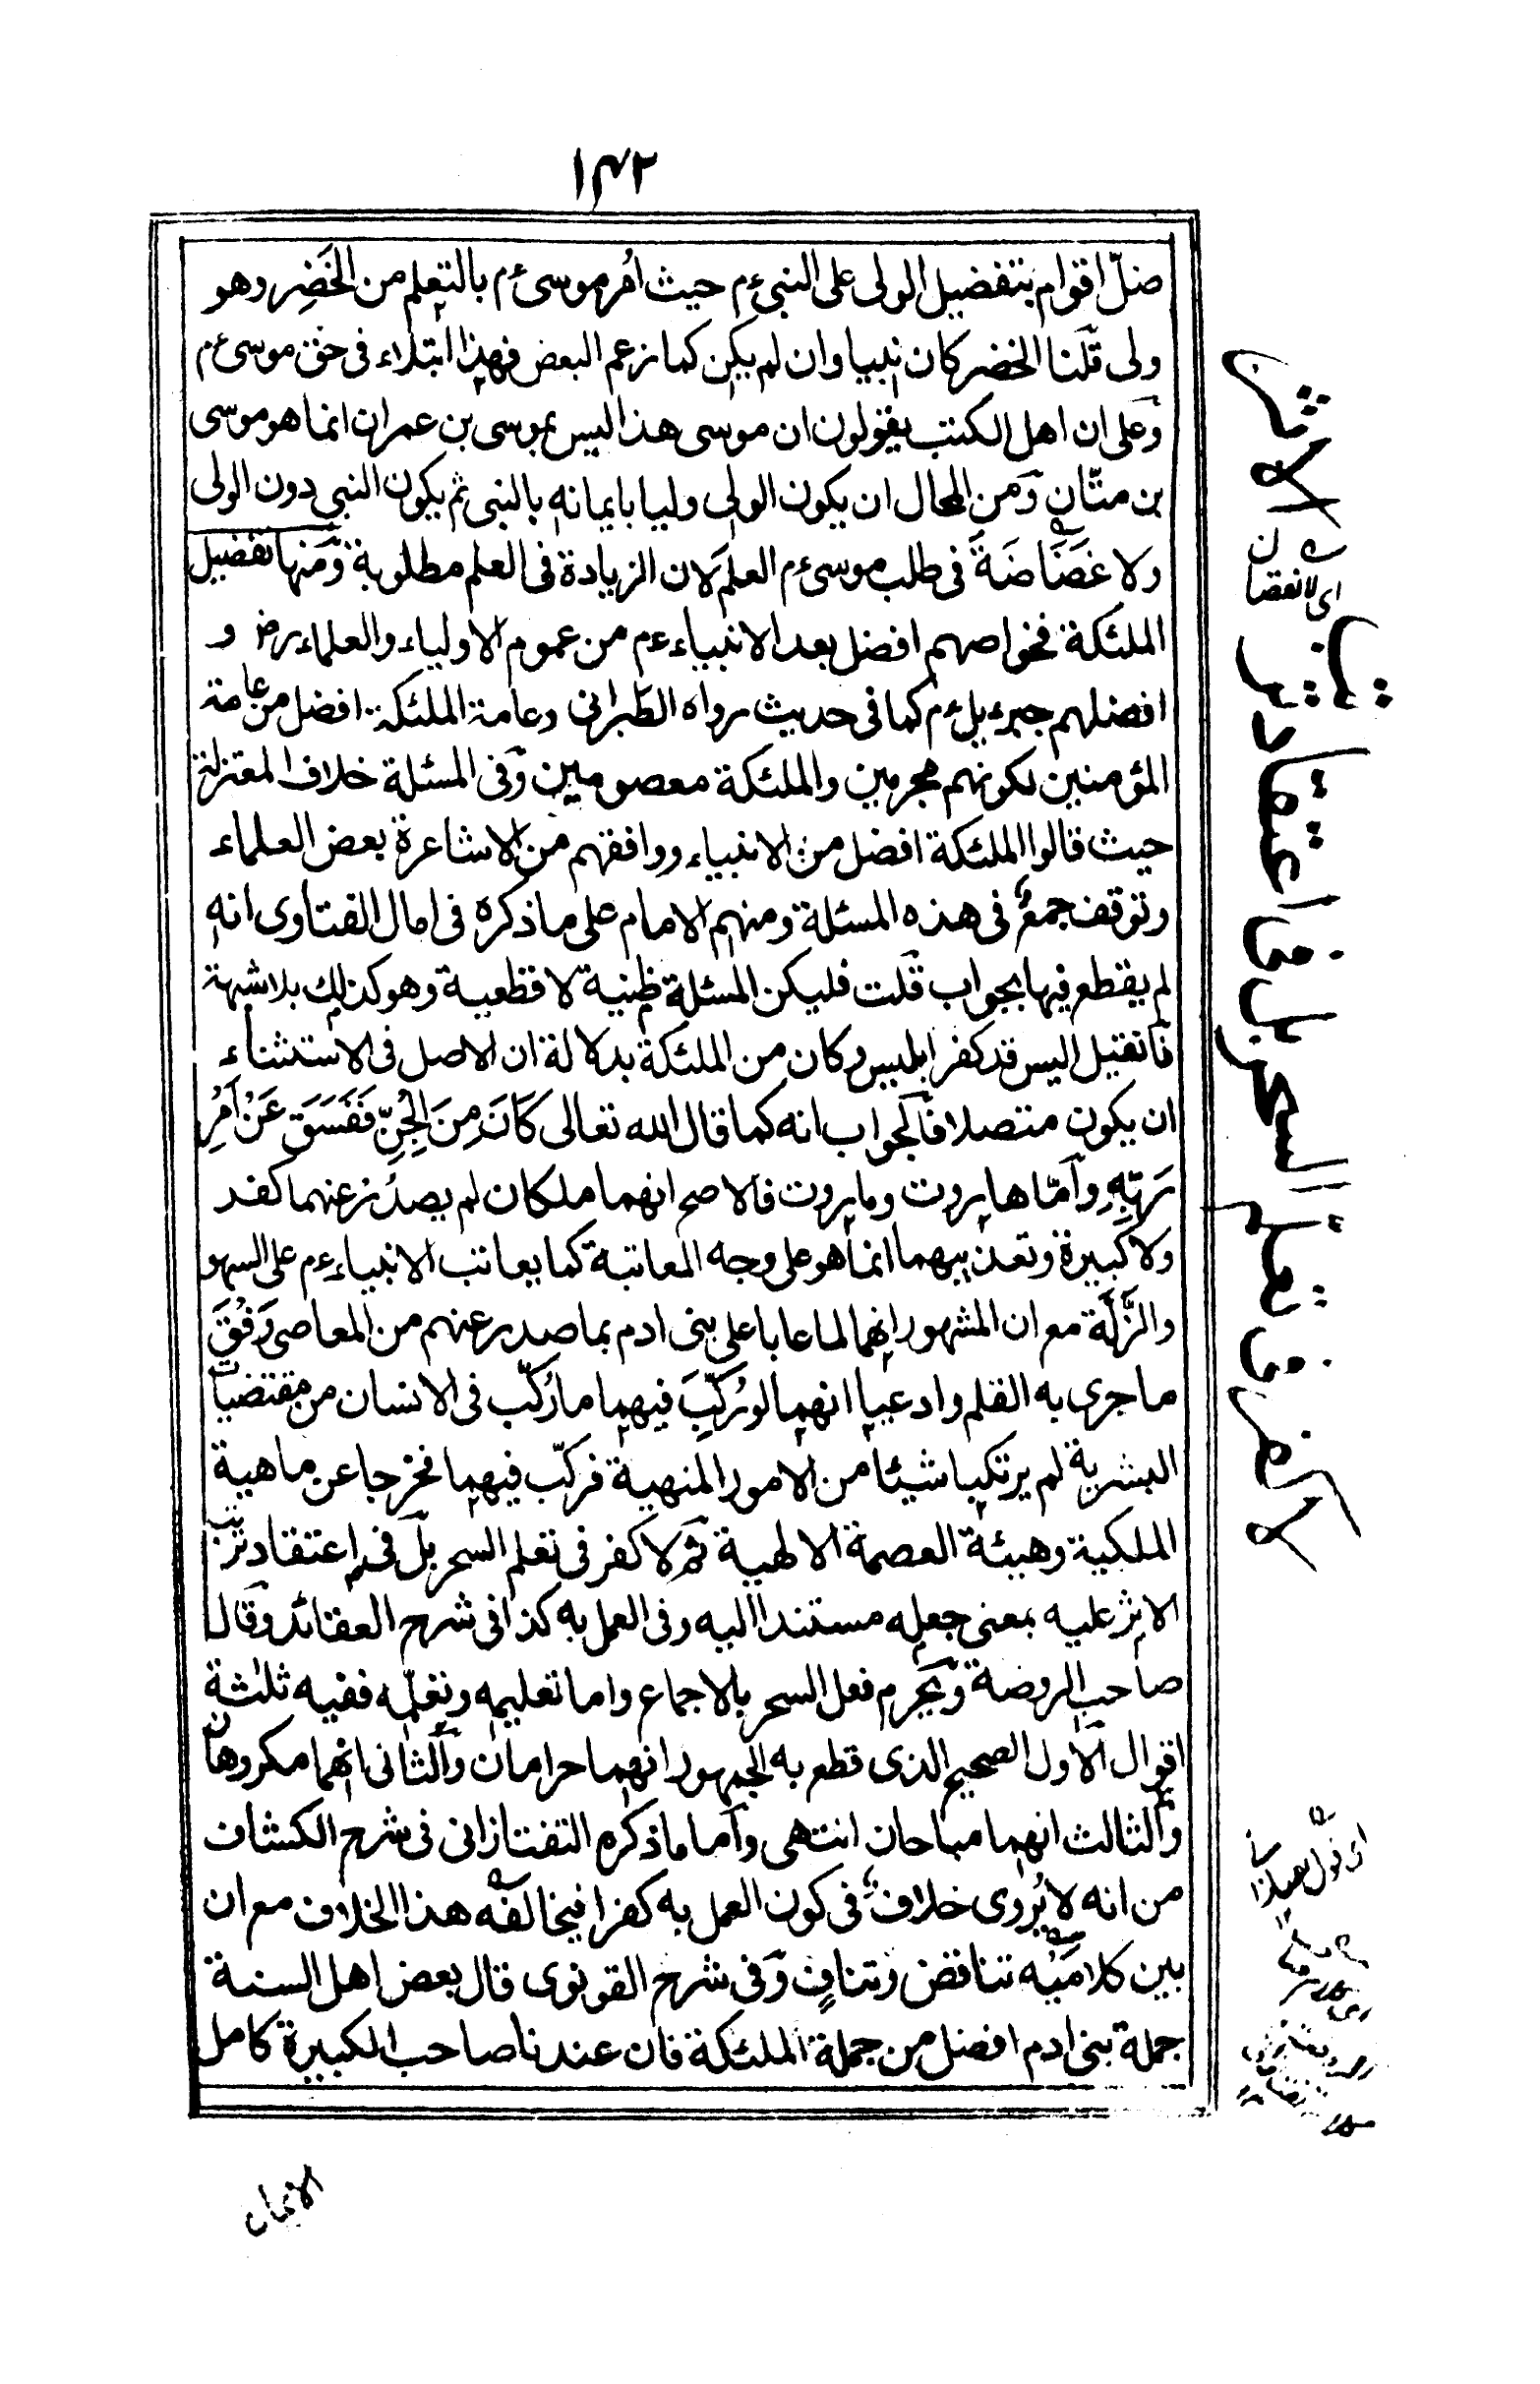 ١٤٢
ضلّ اقوام بتفضيل الولى على النبى ءم حيث اُمر موسى ءم بالتعلم من الخَضِر وهو
ولى قلنا الخضر كان نبيا وان لم يكن كما زعم البعض فهذا ابتلاء فى حق موسى ءم
وعلى ان اهل الكتب يقولون ان موسى هذا ليس بموسى بن عمران انما هو موسى
بن متّان ومن المحال ان يكون الولى وليا بايمانه بالنبى ثم يكون النبى دون الولى
ولا غَضَاضَةَ فى طلب موسى ءم العلم لان الزيادة فى العلم مطلوبة ومنها تفضيل
الملئكة فخواصهم افضل بعد الانبياء ءم من عموم الاولياء والعلماء رض و
افضلهم جبرءيل ءم كما فى حديث رواه الطبرانى وعامة الملئكة افضل من عامة
المؤمنين لكونهم مجرمين والملئكة معصومين وفى المسئلة خلاف المعتزلة
حيث قالوا الملئكة افضل من الانبياء ووافقهم من الاشاعرة بعض العلماء
وتوقف جمعٌ فى هذه المسئلة ومنهم الامام على ما ذكره فى امال الفتاوى انه
لم يقطع فيها بجواب قلت فليكن المسئلة ظنية لا قطعية وهو كذلك بلا شبهة
فان قيل اليس قد كفر ابليس وكان من الملئكة بدلالة ان الاصل فى الاستثناء
ان يكون متصلا فالجواب انه كما قال الله تعالى كَانَ مِنَ الْجِنِّ فَفَسَقَ عَنْ اَمْرِ
رَبِّهِ واَمّا هاروت وماروت فالاصح انهما ملكان لم يصدُر عنهما كفر
ولا كبيرة وتعذيبهما انما هو على وجه المعاتبة كما يعاتب الانبياء ءم على السهو
والزَّلَّة مع ان المشهور انهما لما عابا على بنى ادم بما صدر عنهم من المعاصى وَفْقَ
ما جرى به القلم وادعيا انهما لو رُكِّبَ فيهما ما رُكّب فى الانسان من مقتضيات
البشرية لم يرتكبا شيئا من الامور المنهية فركّب فيهما فخرجا عن ماهية
الملكية وهيئة العصمة الالهية ثم لا كفر فى تعلم السحر بل فى اعتقاد ترتب
الاثر عليه بمعنى جعله مستندا اليه وفى العمل به كذا فى شرح العقائد وقال
صاحب الروضة ويحرم فعل السحر بالاجماع واما تعليمه وتعلّمه ففيه ثلثة
اقوال الاول الصحيح الذى قطع به الجمهور انهما حرامان والثانى انهما مكروهان
والثالث انهما مباحان انتهى واما ما ذكره التفتازانى فى شرح الكشاف
من انه لا يُروى خلافٌ فى كون العمل به كفرا فيخالفه هذا الخلاف مع ان
بين كلامَيْه تناقض وتنافٍ وفى شرح القونوى قال بعض اهل السنة
جملة بنى ادم افضل من جملة الملئكة فان عندنا صاحب الكبيرة كامل
الايمان
لا كفر فى تعلّم السحر بل فى اعتقاد ترتب الاثر
اى لا نقصان